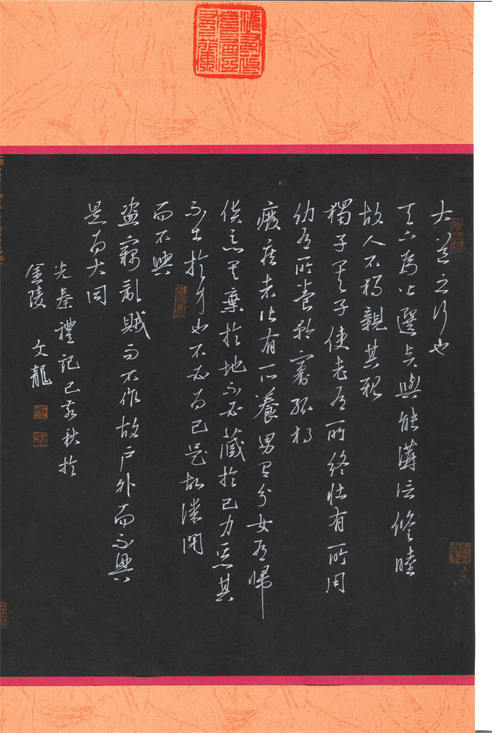 大道之行也
天下為公選賢與能講信修睦
故人不獨親其親
獨子其子使老有所終壮有所用
幼有所長矜寡孤獨
廢疾者皆有所養男有分女有歸
貨惡其棄於地不必藏於己力惡其
不出於身也不必為己是故謀閉
而不興
盜竊亂賊而不作故户外而不興
是為大同
先秦禮記己亥秋於
金陵 文龍